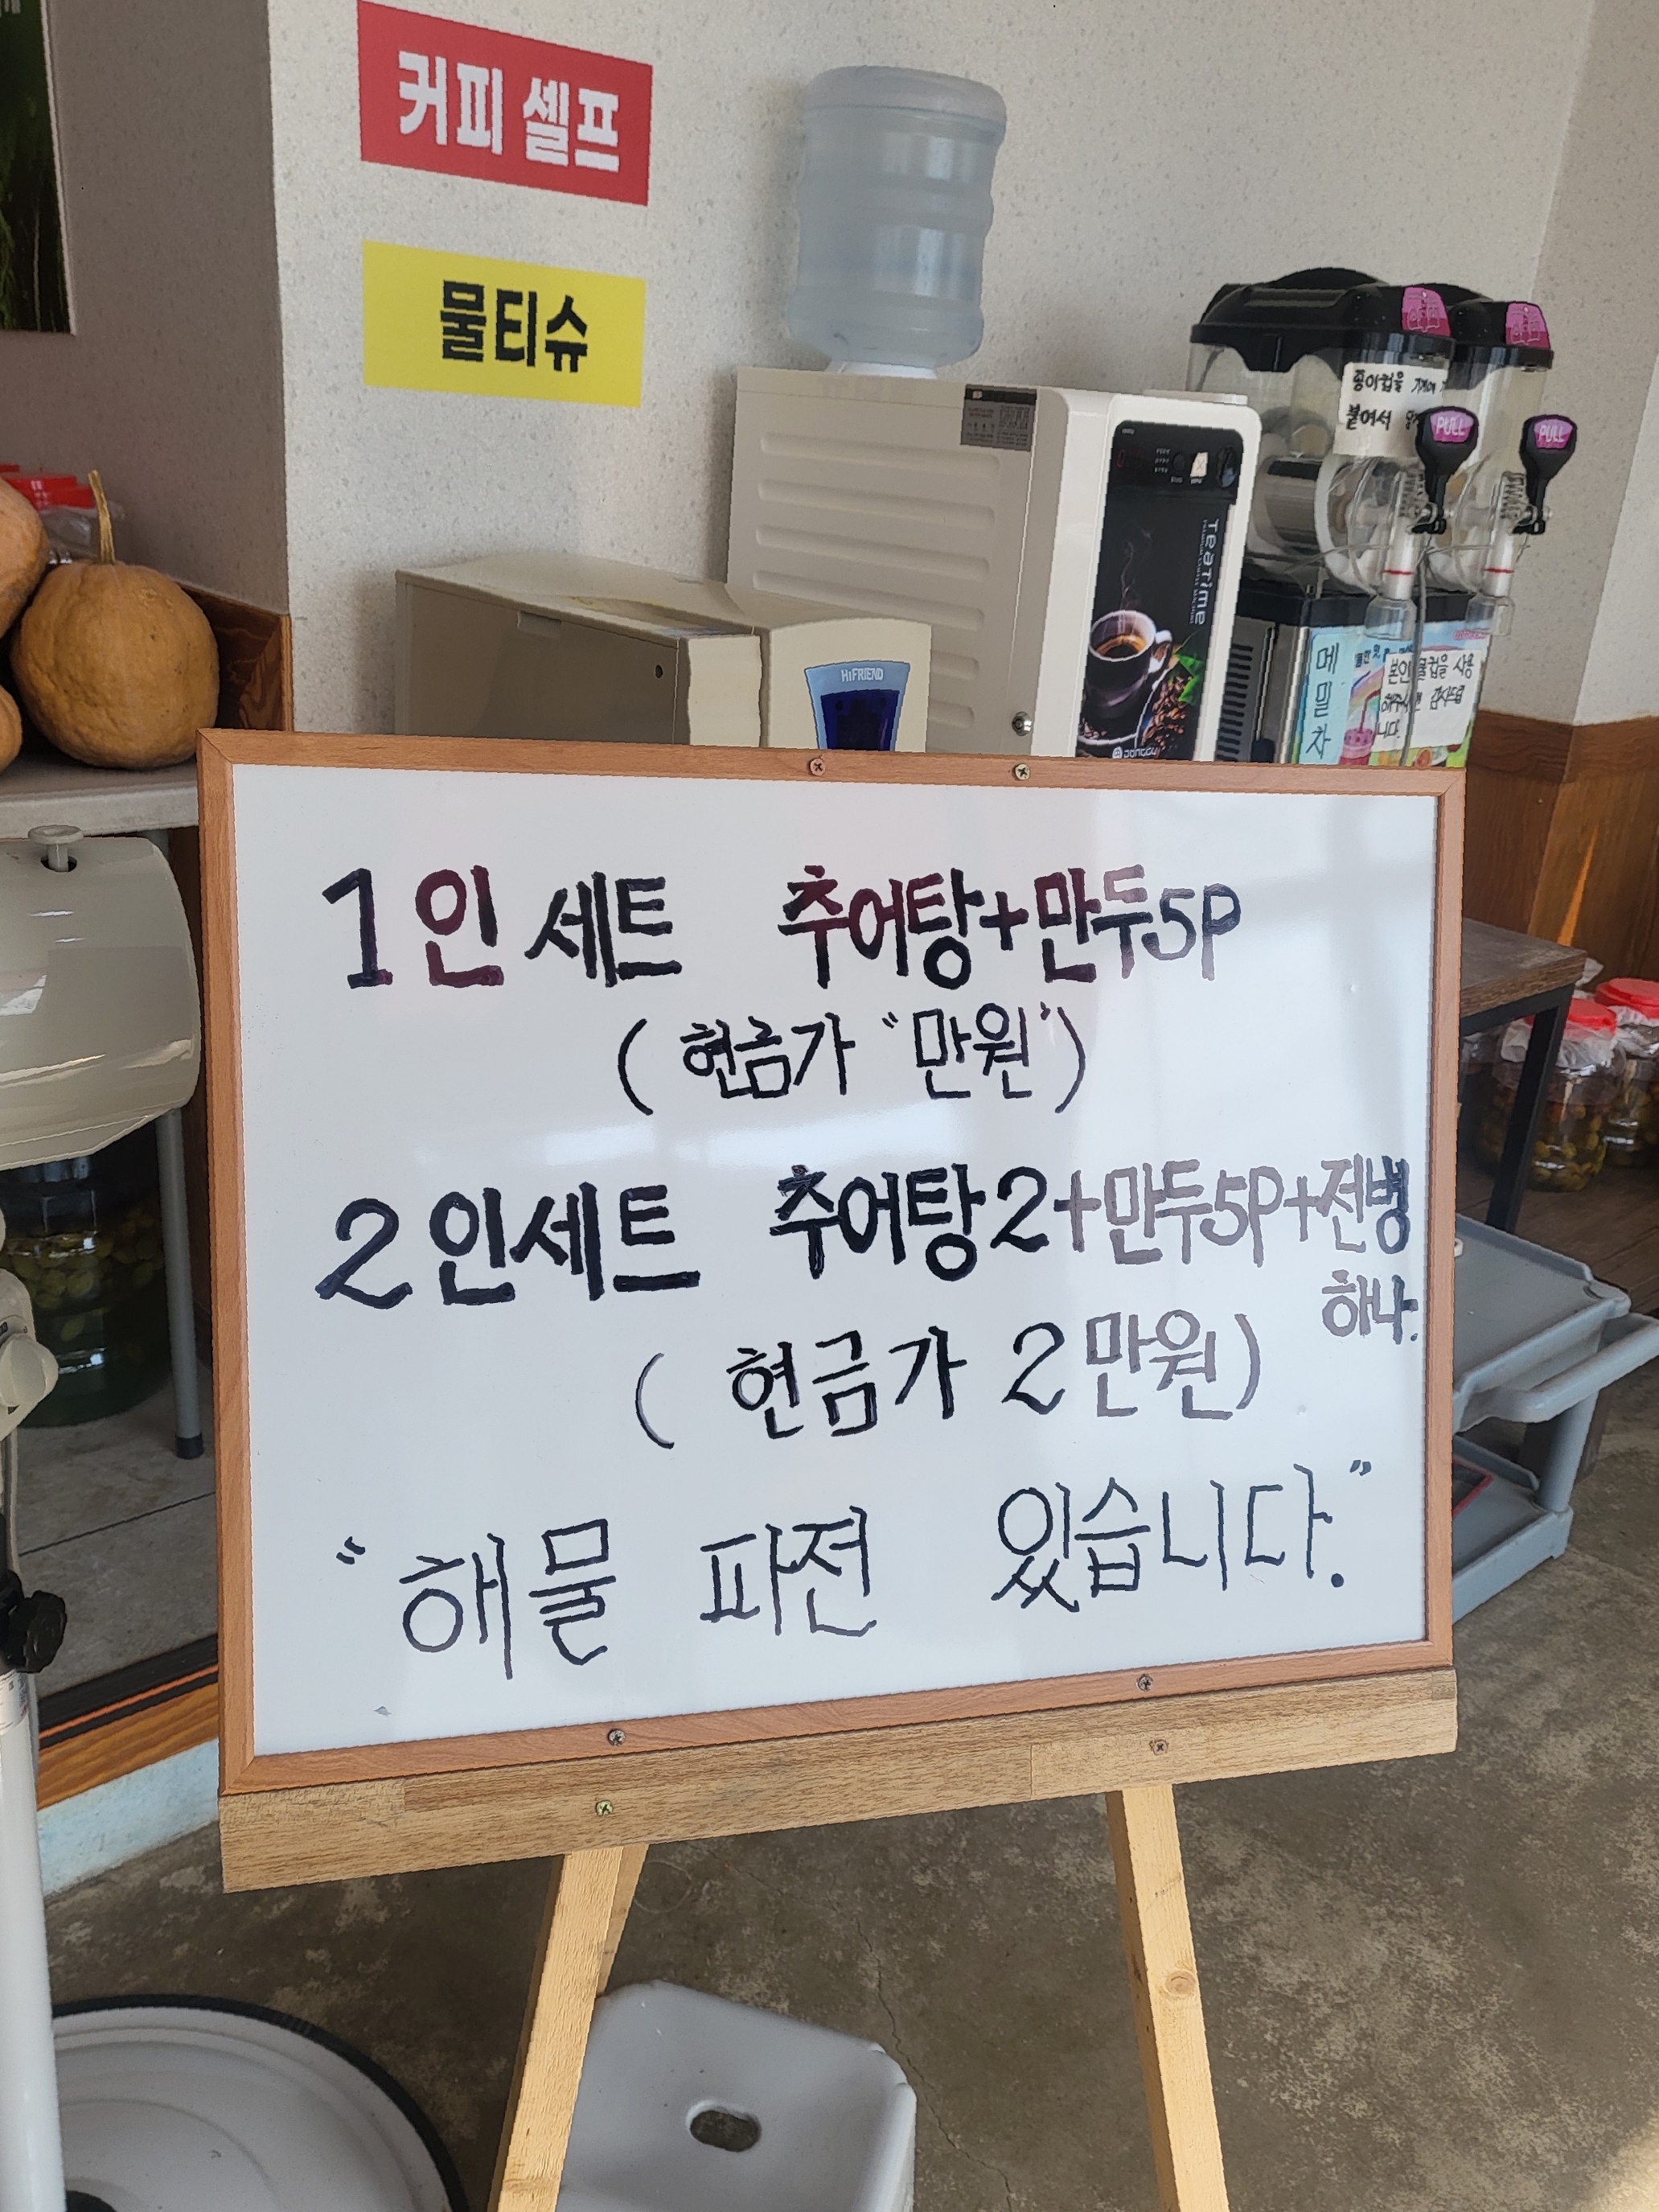 커피 셀프
물티슈
종이컵을
붙여서
PULL
PULL
TeaTime
HiFRIEND
메밀차
본인 물컵을 사용
해주시면 감사드립
니다.
1인세트 추어탕+만두5P
(현금가 "만원")
2인세트 추어탕2+만두5P+전병
하나.
(현금가 2만원)
"해물 파전 있습니다."